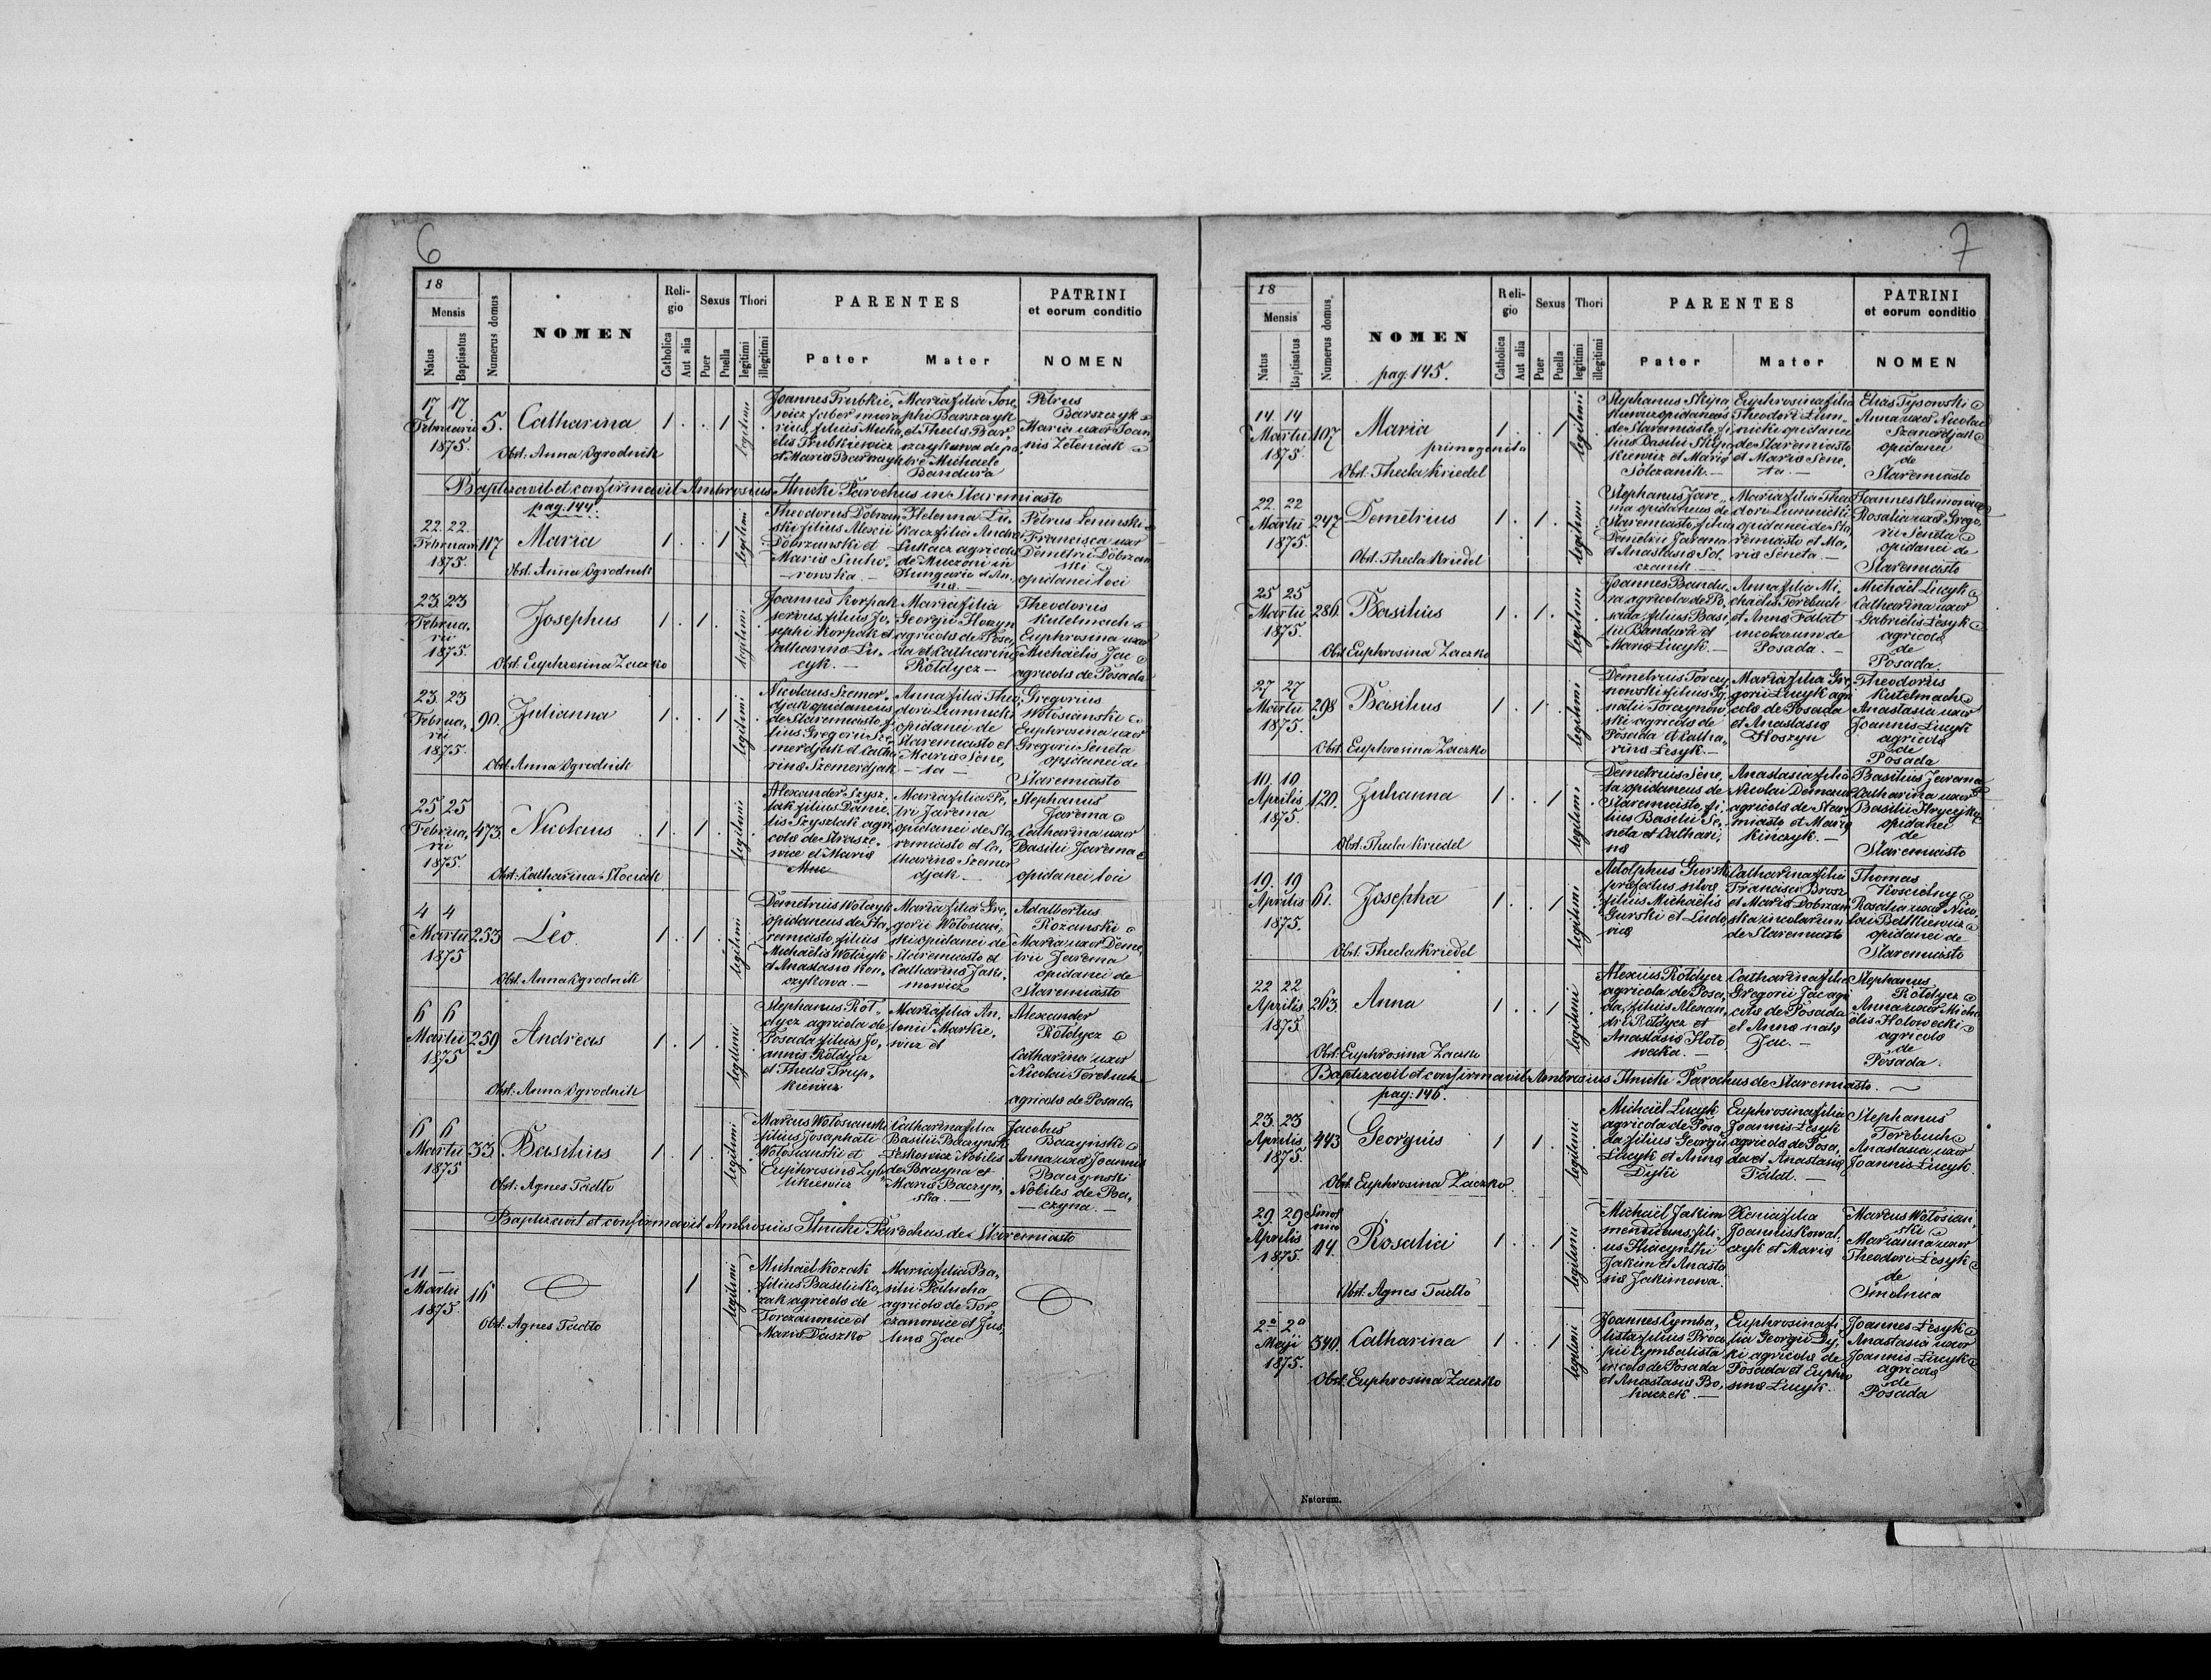 6
18
Mensis
Natus
Baptisatus
Numerus domus
NOMEN
Religio
Catholica
Aut alia
Sexus
Puer
Puella
Thori
legitimi
illegitimi
PARENTES
Pater
Mater
PATRINI
et eorum conditio
NOMEN
17 17
Februarii
1875.
5.
Catharina
1 . . 1
legitimi
Obst: Anna Ogrodnik
Joannes Trubkie,
wicz faber mura
rius, filius Micha,
elis Trubkiewicz
et Maria Barszczyk
Maria filia Jose,
phi Barszczyk
et Thecla Bar,
szczykowa de pa
tre Michaele
Bandura
Petrus
Barszczyk
Maria uxor Joan
nis Zeleniak
Baptizavit et confirmavit Ambrosius Ilnicki Parochus in Staremiasto
pag. 144.
22. 22.
Februarii
1875
117
Maria
1 . . 1
legitimi
Obst. Anna Ogrodnik
Theodorus Dobrzan
ski filius Alexii
Dobrzanski et
Maria Sucho,
rowska. —
Helenna Lu,
kacz filia Andrea
Lukacz agricola
de Muczoni in
Hungaria et An,
na. —
Petrus Leninski
Francisca uxor
Demetrii Dobrzan
ski
opidanei loci
23. 23
Februa,
rii
1875.
Josephus
1 . 1 .
legitimi
Obst. Euphrosina Zaczko
Joannes Korpak
servus, filius Jo,
sephi Korpak et
Catharina Lu,
cyk. —
Maria filia
Georgii Hoszyn
agricola de Posa,
da et Catharina
Roldycz —
Theodorus
Kutelmach
Euphrosina uxor
Michaelis Jac
agricola de Posada
23. 23
Februa,
rii
1875.
90.
Julianna
1 . . 1
legitimi
Obst. Anna Ogrodnik
Nicolaus Szemer
djak opidaneus
de Staremiasto, fi
lius Gregorii Sze
merdjak et Catha
rina Szemerdjak
Anna filia Theo,
dori Lumnicki
opidanei de
Staremiasto et
Maria Sene,
— ta —
Gregorius
Wolosianski
Euphrosina uxor
Gregorii Seneta
opidanei de
Staremiasto
25 25
Februa,
rii
1875
473.
Nicolaus
. 1 . 1 .
legitimi
Obst: Catharina Slociak
Alexander Szysz
lak filius Danie
lis Szyszlak agri
cola de Strasze,
wice et Maria
Muc
Maria filia Pe,
tri Jarema
opidanei de Sta
remiasto et Ca,
tharina Szemer
djak —
Stephanus
Jarema
Catharina uxor
Basilii Jarema
opidanei loci
4 4
Martii
1875
253
Leo.
1 . 1 .
legitimi
Obst: Anna Ogrodnik
Demetrius Wolczyk
opidaneus de Sta,
remiasto, filius
Michaelis Wolczyk
et Anastasia Kon,
czykowa. —
Maria filia Gre,
gorii Wolosian,
ski opidanei de
Staremiasto et
Catharina Jaki
mowicz
Adalbertus
Rozanski
Maria uxor Deme,
trii Jarema
opidanei de
Staremiasto
6 6
Martii
1875
259
Andreas
1 . 1 .
legitimi
Obst: Anna Ogrodnik
Stephanus Rol
dycz agricola de
Posada filius Jo,
annis Roldycz
et Thecla Trup,
kiewicz
Maria filia An,
tonii Markie,
wicz et
Alexander
Roldycz
Catharina uxor
Nicolai Terebuch
agricola de Posada
6 6
Martii
1875
33.
Basilius
1 . 1 .
legitimi
Obst: Agnes Tadlo
Marcus Wolosianski
filius Josaphati
Wolosianski et
Euphrosina Zyb,
likiewicz
Catharina filia
Basilii Baczynski
Leskowicz Nobilis
de Baczyna et
Maria Baczyn,
ska. —
Jacobus
Baczynski
Anna uxor Joannis
Baczynski
Nobiles de Ba,
— czyna. —
Baptizavit et confirmavit Ambrosius Ilnicki Parochus de Staremiasto
11 —
Martii
1875.
16
1
legitimi
Obst: Agnes Tadlo
Michaël Kozak
filius Basilii Ko,
zak agricola de
Torczanowice et
Maria Daszko
Maria filia Ba,
silii Palucha
agricola de Tor,
czanowice et Jus,
tina Jac
7
18
Mensis
Natus
Baptisatus
Numerus domus
NOMEN
pag: 145.
Religio
Catholica
Aut alia
Sexus
Puer
Puella
Thori
legitimi
illegitimi
PARENTES
Pater
Mater
PATRINI
et eorum conditio
NOMEN
14 14
Martii
1875.
107
Maria
primogenita
1 . . 1
legitimi
Obst: Thecla Kriedel
Stephanus Skipa
kiewicz opidaneus
de Staremiasto, fi
lius Basilii Skipa
kiewicz et Maria
Solczanik. —
Euphrosina filia
Theodori Lum,
nicki opidanei
de Staremiasto
et Maria Sene,
ta. —
Elias Tysowski
Anna uxor Nicolai
Szemerdjak
opidanei
de
Staremiasto
22. 22
Martii
1875.
247
Demetrius
1 . 1 .
legitimi
Obst: Thecla Kriedel
Stephanus Jare,
ma opidaneus de
Staremiasto, filius
Demetrii Jarema
et Anastasia Sol,
czanik. —
Maria filia Theo
dori Lumnicki
opidanei de Sta
remiasto et Ma,
ria Seneta. —
Joannes Klimowicz
Rosalia uxor Grego,
rii Seneta
opidanei de
Staremiasto
25 25
Martii
1875.
286.
Basilius
1 . 1 .
legitimi
Obst. Euphrosina Zaczko
Joannes Bandu,
ra agricola de Po,
sada, filius Basi
lii Bandura et
Maria Lucyk. —
Anna filia Mi,
chaelis Terebuch
et Anna Falat
incolarum de
Posada. —
Michaël Lucyk
Catharina uxor
Gabrielis Lesyk
agricola
de
Posada.
27 27
Martii
1875.
298
Basilius
1 . 1 .
legitimi
Obst. Euphrosina Zaczko
Demetrius Torczy,
nowski filius Ig,
natii Torczynow,
ski agricola de
Posada et Catha,
rina Lesyk. —
Maria filia Gre,
gorii Lucyk agri
cola de Posada
et Anastasia
Hoszyn
Theodorus
Kutelmach
Anastasia uxor
Joannis Lucyk
agricola
de
Posada
10. 10
Aprilis
1875.
120.
Julianna
1 . . 1
legitimi
Obst: Thecla Kriedel
Demetrius Sene,
ta opidaneus de
Staremiasto, fi,
lius Basilii Se,
neta et Cathari,
na
Anastasia filia
Nicolai Demczuk
agricola de Stare
miasto et Maria
Kinczyk. —
Basilius Jarema
Catharina uxor
Basilii Hrycyk
opidanei
de
Staremiasto
19. 19
Aprilis
1875.
61.
Josepha
1 . . 1
legitimi
Obst: Thecla Kriedel
Adolphus Gorski
præfectus silva
filius Michaëlis
Gurski et Ludo,
vica
Catharina filia
Francisci Brosz
et Maria Dobrzan
ska incolarum
de Staremiasto
Thomas
Koscielny
Rosalia uxor Nico,
lai Beltkiewicz
opidanei de
Staremiasto
22 22
Aprilis
1875
263.
Anna
1 . . 1
legitimi
Obst: Euphrosina Zaczko
Alexius Roldycz
agricola de Posa,
da, filius Alexan,
dri Roldycz et
Anastasia Holo
wecka. —
Catharina filia
Gregorii Jac agri
cola de Posada
et Anna nata
Jac. —
Stephanus
Roldycz
Anna uxor Micha
ëlis Holowecki
agricola
de
Posada.
Baptizavit et confirmavit Ambrosius Ilnicki Parochus de Staremiasto.
pag: 146.
23. 23
Aprilis
1875.
443
Georgius
1 . 1 .
legitimi
Obst. Euphrosina Zaczko
Michaël Lucyk
agricola de Posa,
da filius Georgii
Lucyk et Anna
Dyki
Euphrosina filia
Joannis Lesyk
agricola de Posa,
da et Anastasia
Falat. —
Stephanus
Terebuch
Anastasia uxor
Joannis Lucyk.
29. 29
Aprilis
1875.
Smol
nica
14.
Rosalia
1 . . 1
legitimi
Obst: Agnes Tadlo
Michaël Jakim
mendicus, fili,
us Hiacynthi
Jakim et Anasta
sia Jakimowa.
Xenia filia
Joannis Kowal,
czyk et Maria
Marcus Wolosian,
ski
Marianna uxor
Theodori Lesyk
de
Smolnica
2ª 2ª
Maji
1875.
340.
Catharina
1 . . 1
legitimi
Obst. Euphrosina Zaczko
Joannes Cymba,
lista filius Proco
pii Cymbalista
incola de Posada
et Anastasia Bo,
haczek. —
Euphrosina fi,
lia Georgii Dy,
ki agricola de
Posada et Euphro
sina Lucyk.
Joannes Lesyk
Anastasia uxor
Joannis Lucyk
agricola
de
Posada
Natorum.